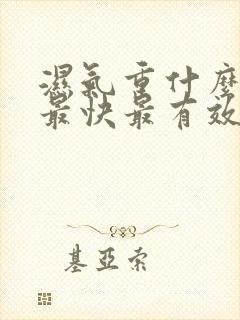 濕氣重什麼
最快最有效
基亞索